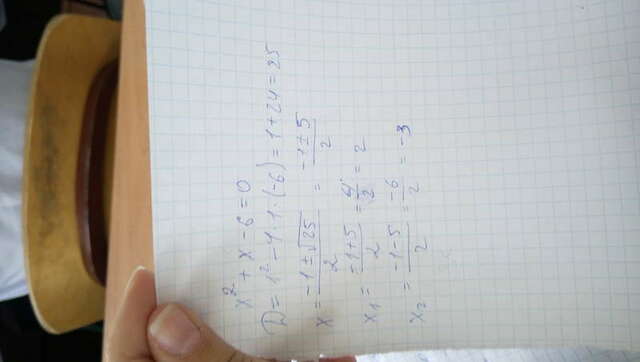 x² + x - 6 = 0
D = 1² - 4 · 1 · (-6) = 1 + 24 = 25
x = (-1 ± √25)/2 = (-1 ± 5)/2
x₁ = (-1 + 5)/2 = 4/2 = 2
x₂ = (-1 - 5)/2 = -6/2 = -3